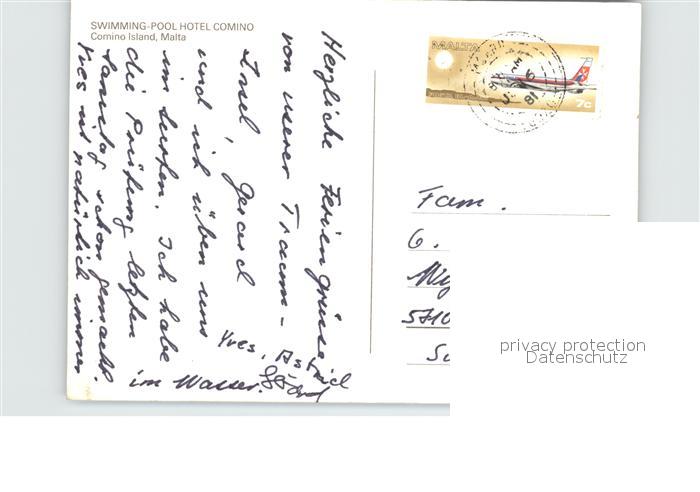 SWIMMING-POOL HOTEL COMINO
Comino Island, Malta
Herzliche Feriengrüsse
von unserer Traum-
Insel, Gerard
und ich üben uns
im Surfen. Ich habe
die Prüfung letzten
Samstag schon gemacht.
Yves ist natürlich immer
im Wasser.
Yves, Astrid
Gérard
MALTA
7c
Fam.
6.
5710
privacy protection
Datenschutz